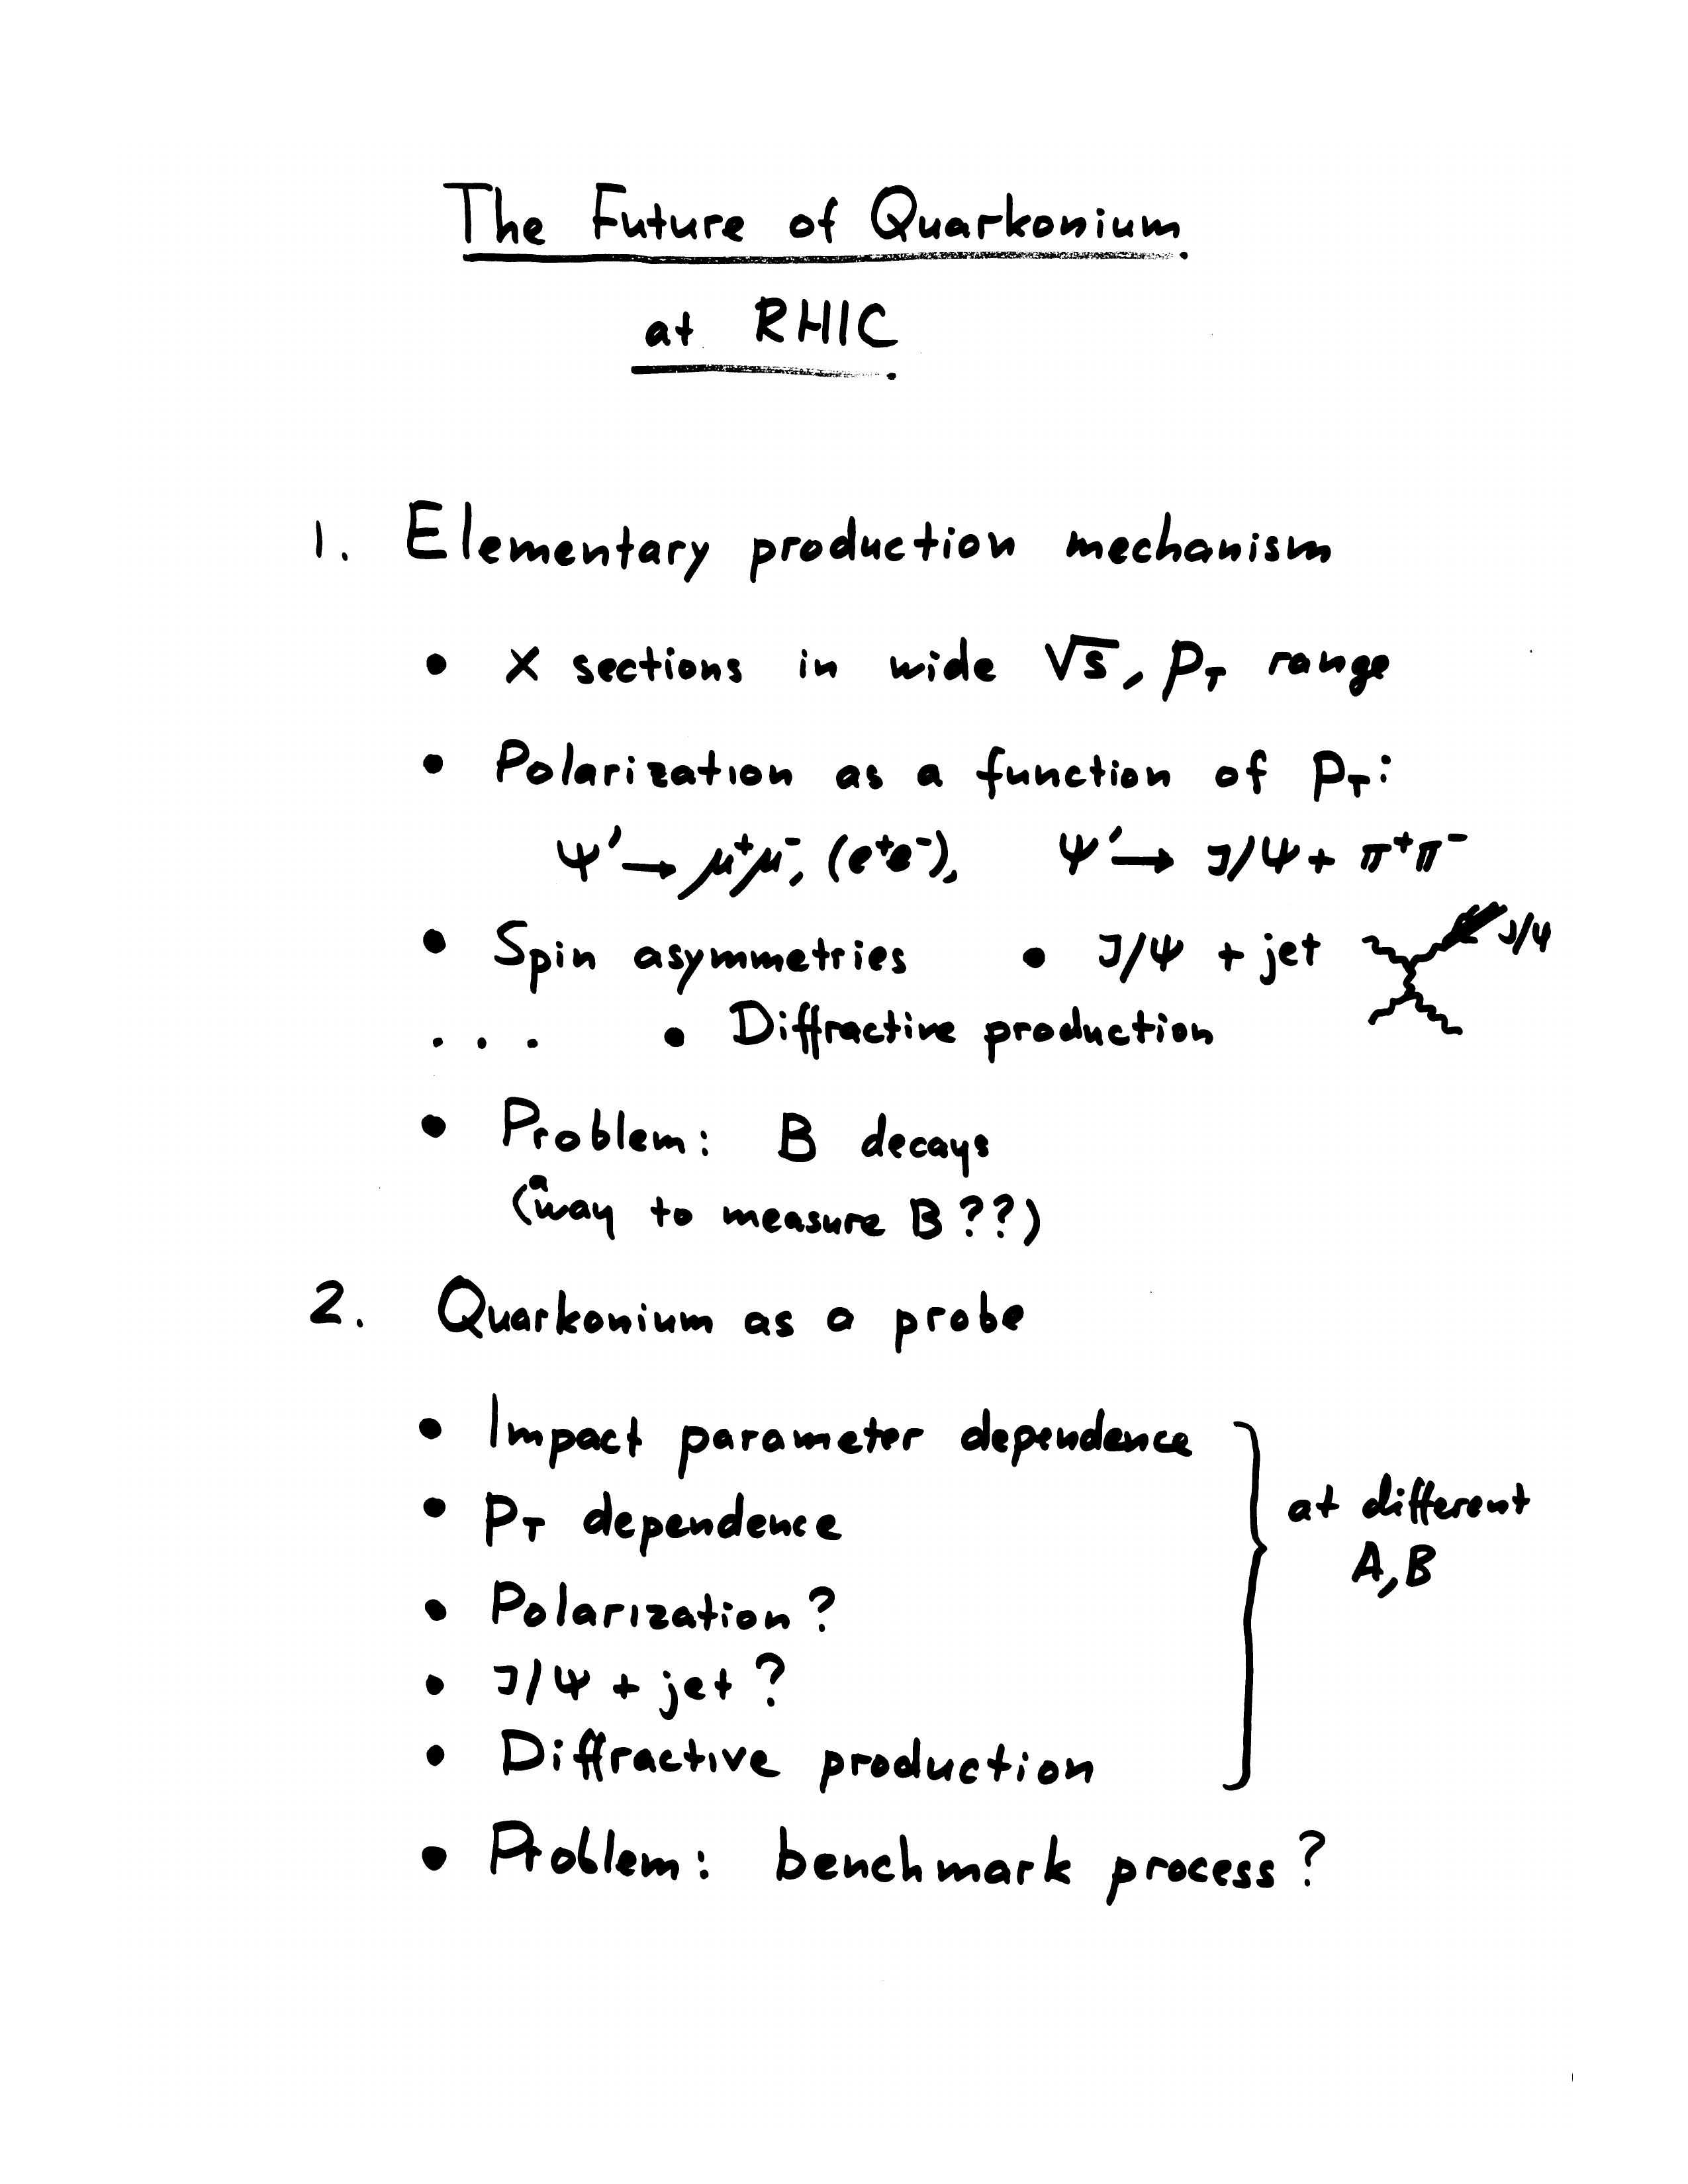 The Future of Quarkonium
at RHIC
1. Elementary production mechanism
• X sections in wide √s, p_T range
• Polarization as a function of p_T:
Ψ′ → μ⁺μ⁻, (e⁺e⁻), Ψ′ → J/Ψ + π⁺π⁻
• Spin asymmetries • J/Ψ + jet J/Ψ
... • Diffractive production
• Problem: B decays
(a way to measure B ??)
2. Quarkonium as a probe
• Impact parameter dependence
• p_T dependence
at different
A, B
• Polarization ?
• J/Ψ + jet ?
• Diffractive production
• Problem: benchmark process ?